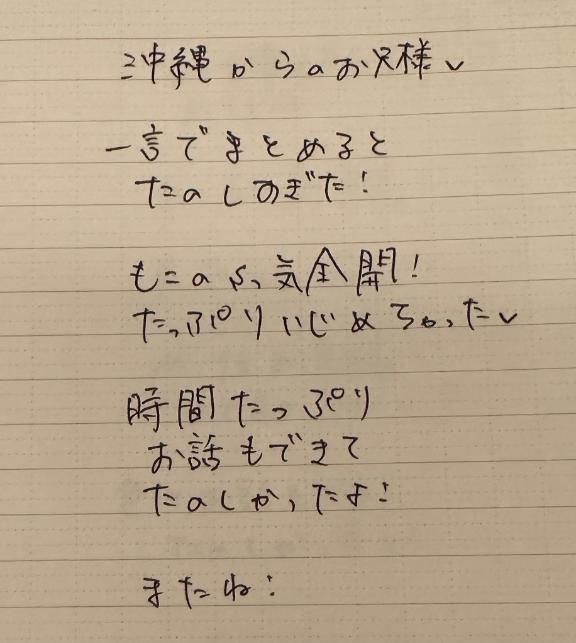 沖縄からのお兄様✓
一言でまとめると
たのしすぎた!
もこのふん気全開!
たっぷりいじめちゃった✓
時間たっぷり
お話もできて
たのしかったよ!
またね!